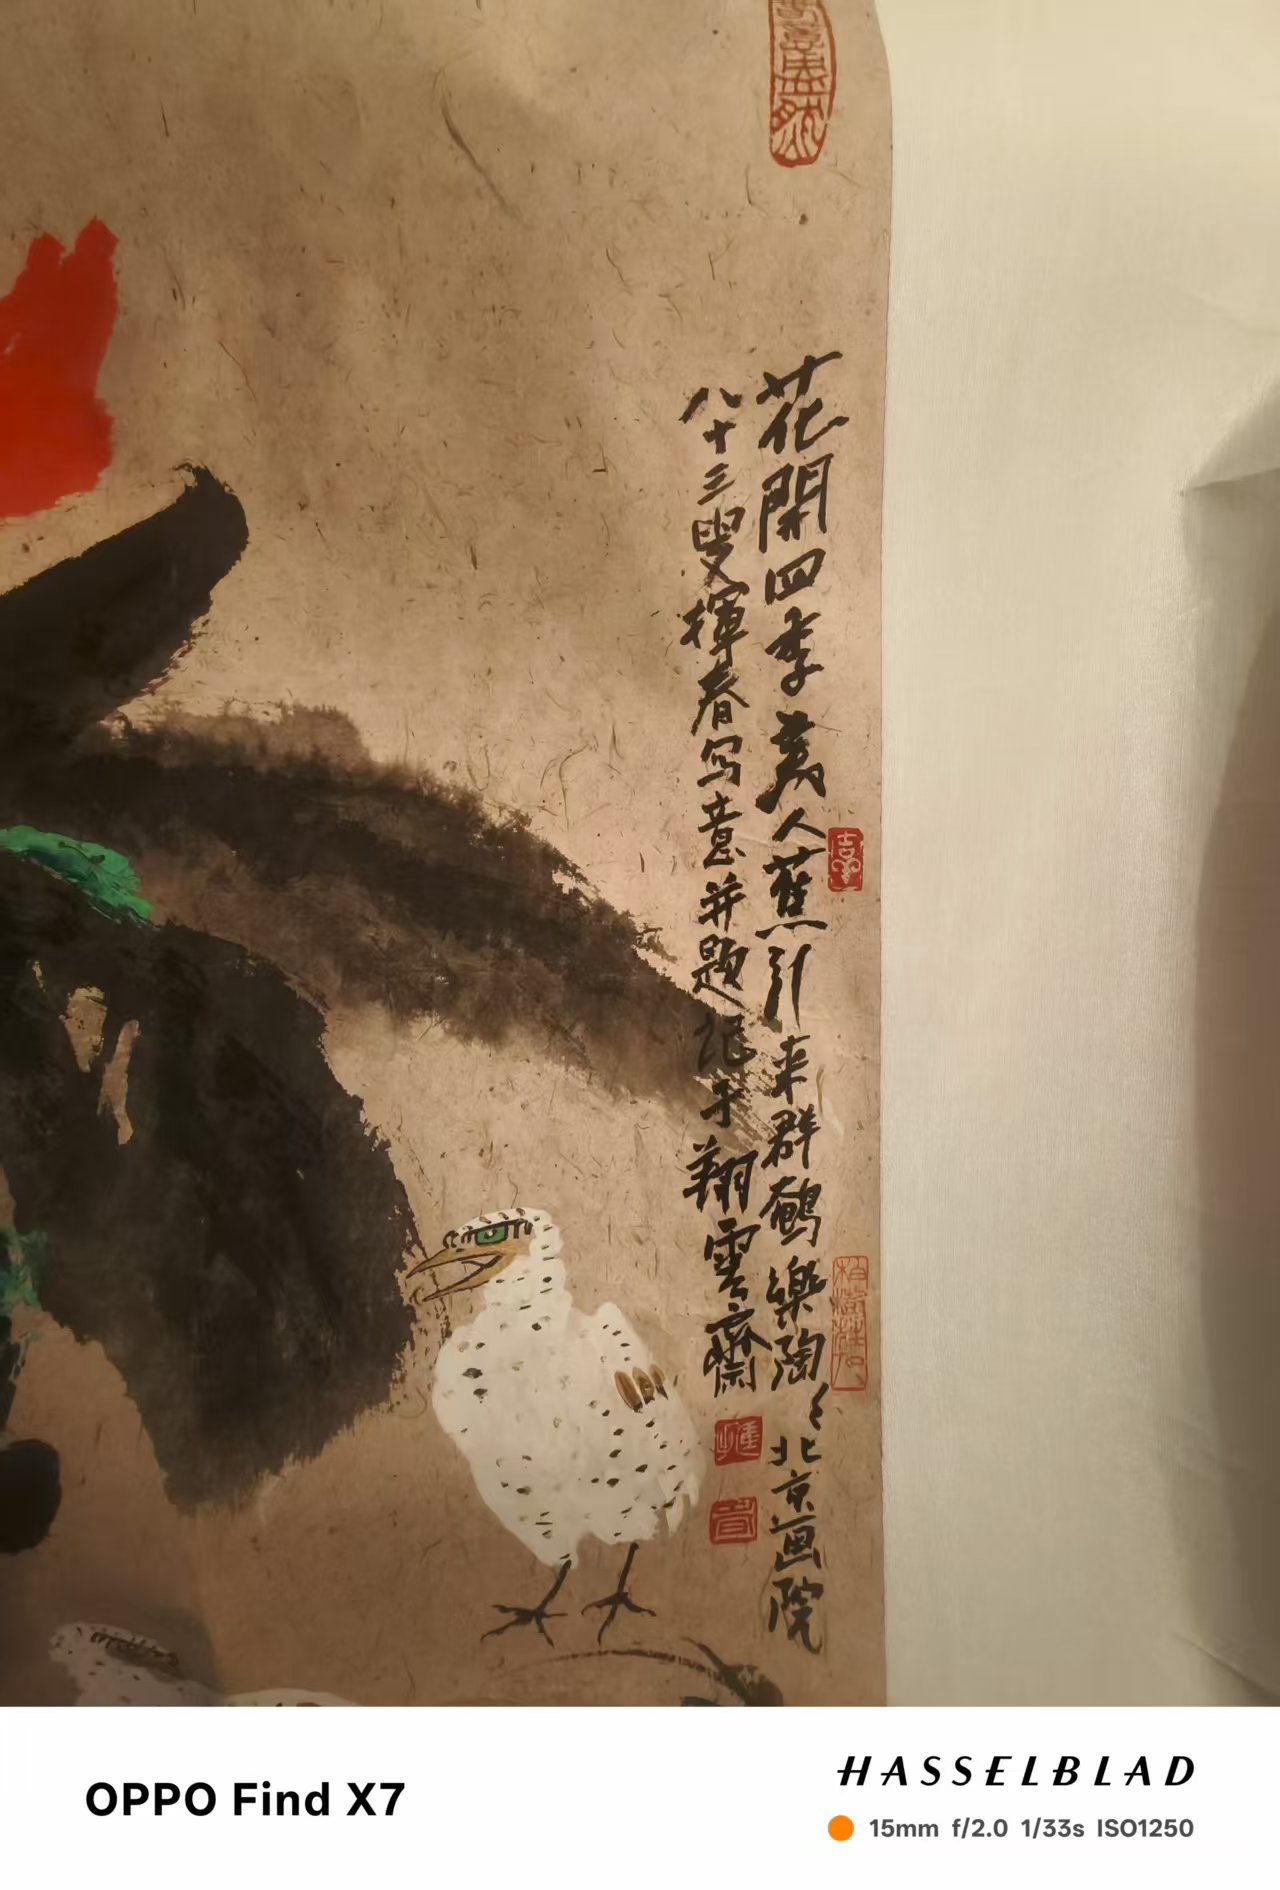 花開四季美人蕉引来群鹌樂陶〻北京画院
八十三叟揮春写意并題記于翔雲齋
OPPO Find X7
HASSELBLAD
15mm f/2.0 1/33s ISO1250